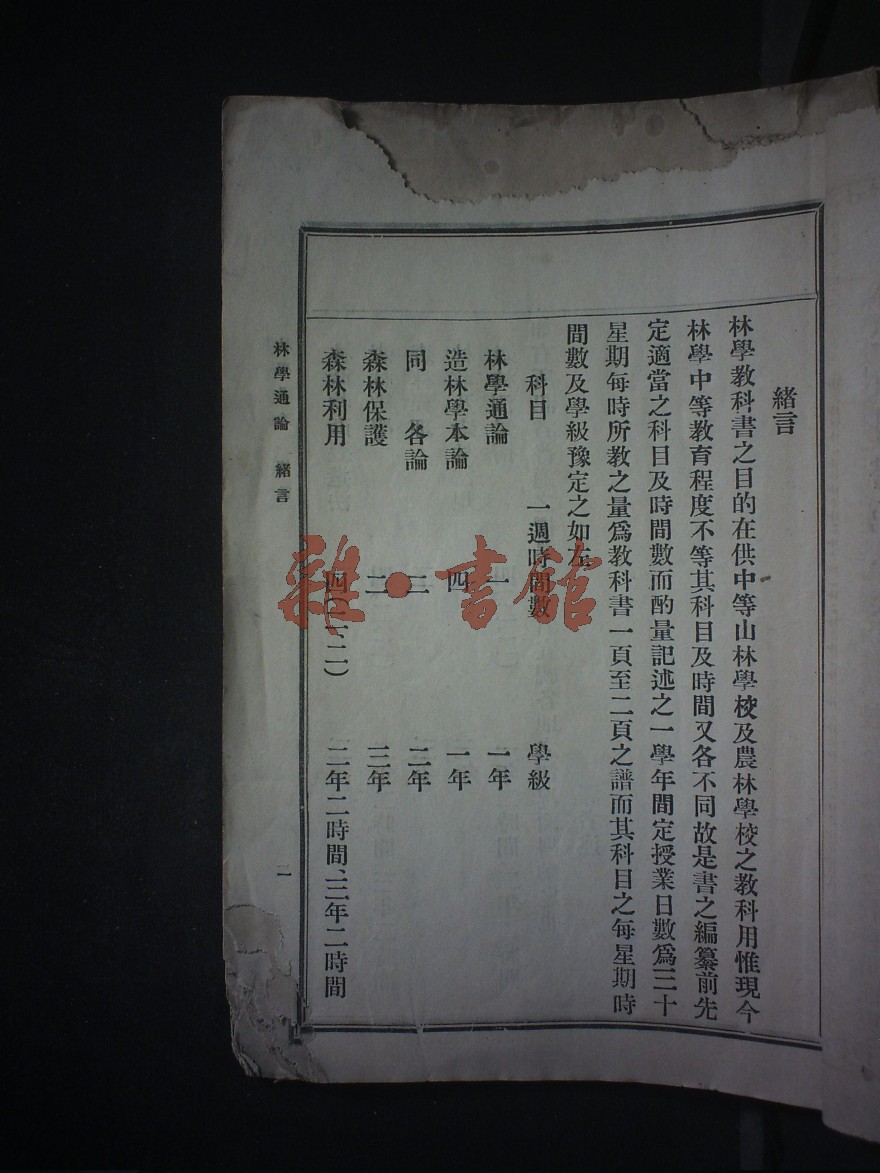 緒言
林學教科書之目的在供中等山林學校及農林學校之教科用惟現今
林學中等教育程度不等其科目及時間又各不同故是書之編纂前先
定適當之科目及時間數而酌量記述之一學年間定授業日數爲三十
星期每時所教之量爲教科書一頁至二頁之譜而其科目之每星期時
間數及學級豫定之如左
科目 一週時間數 學級
林學通論 一 一年
造林學本論 四 一年
同 各論 二 二年
森林保護 二 三年
森林利用 四(二、二) 二年二時間、三年二時間
林學通論 緒言 一
雜·書館